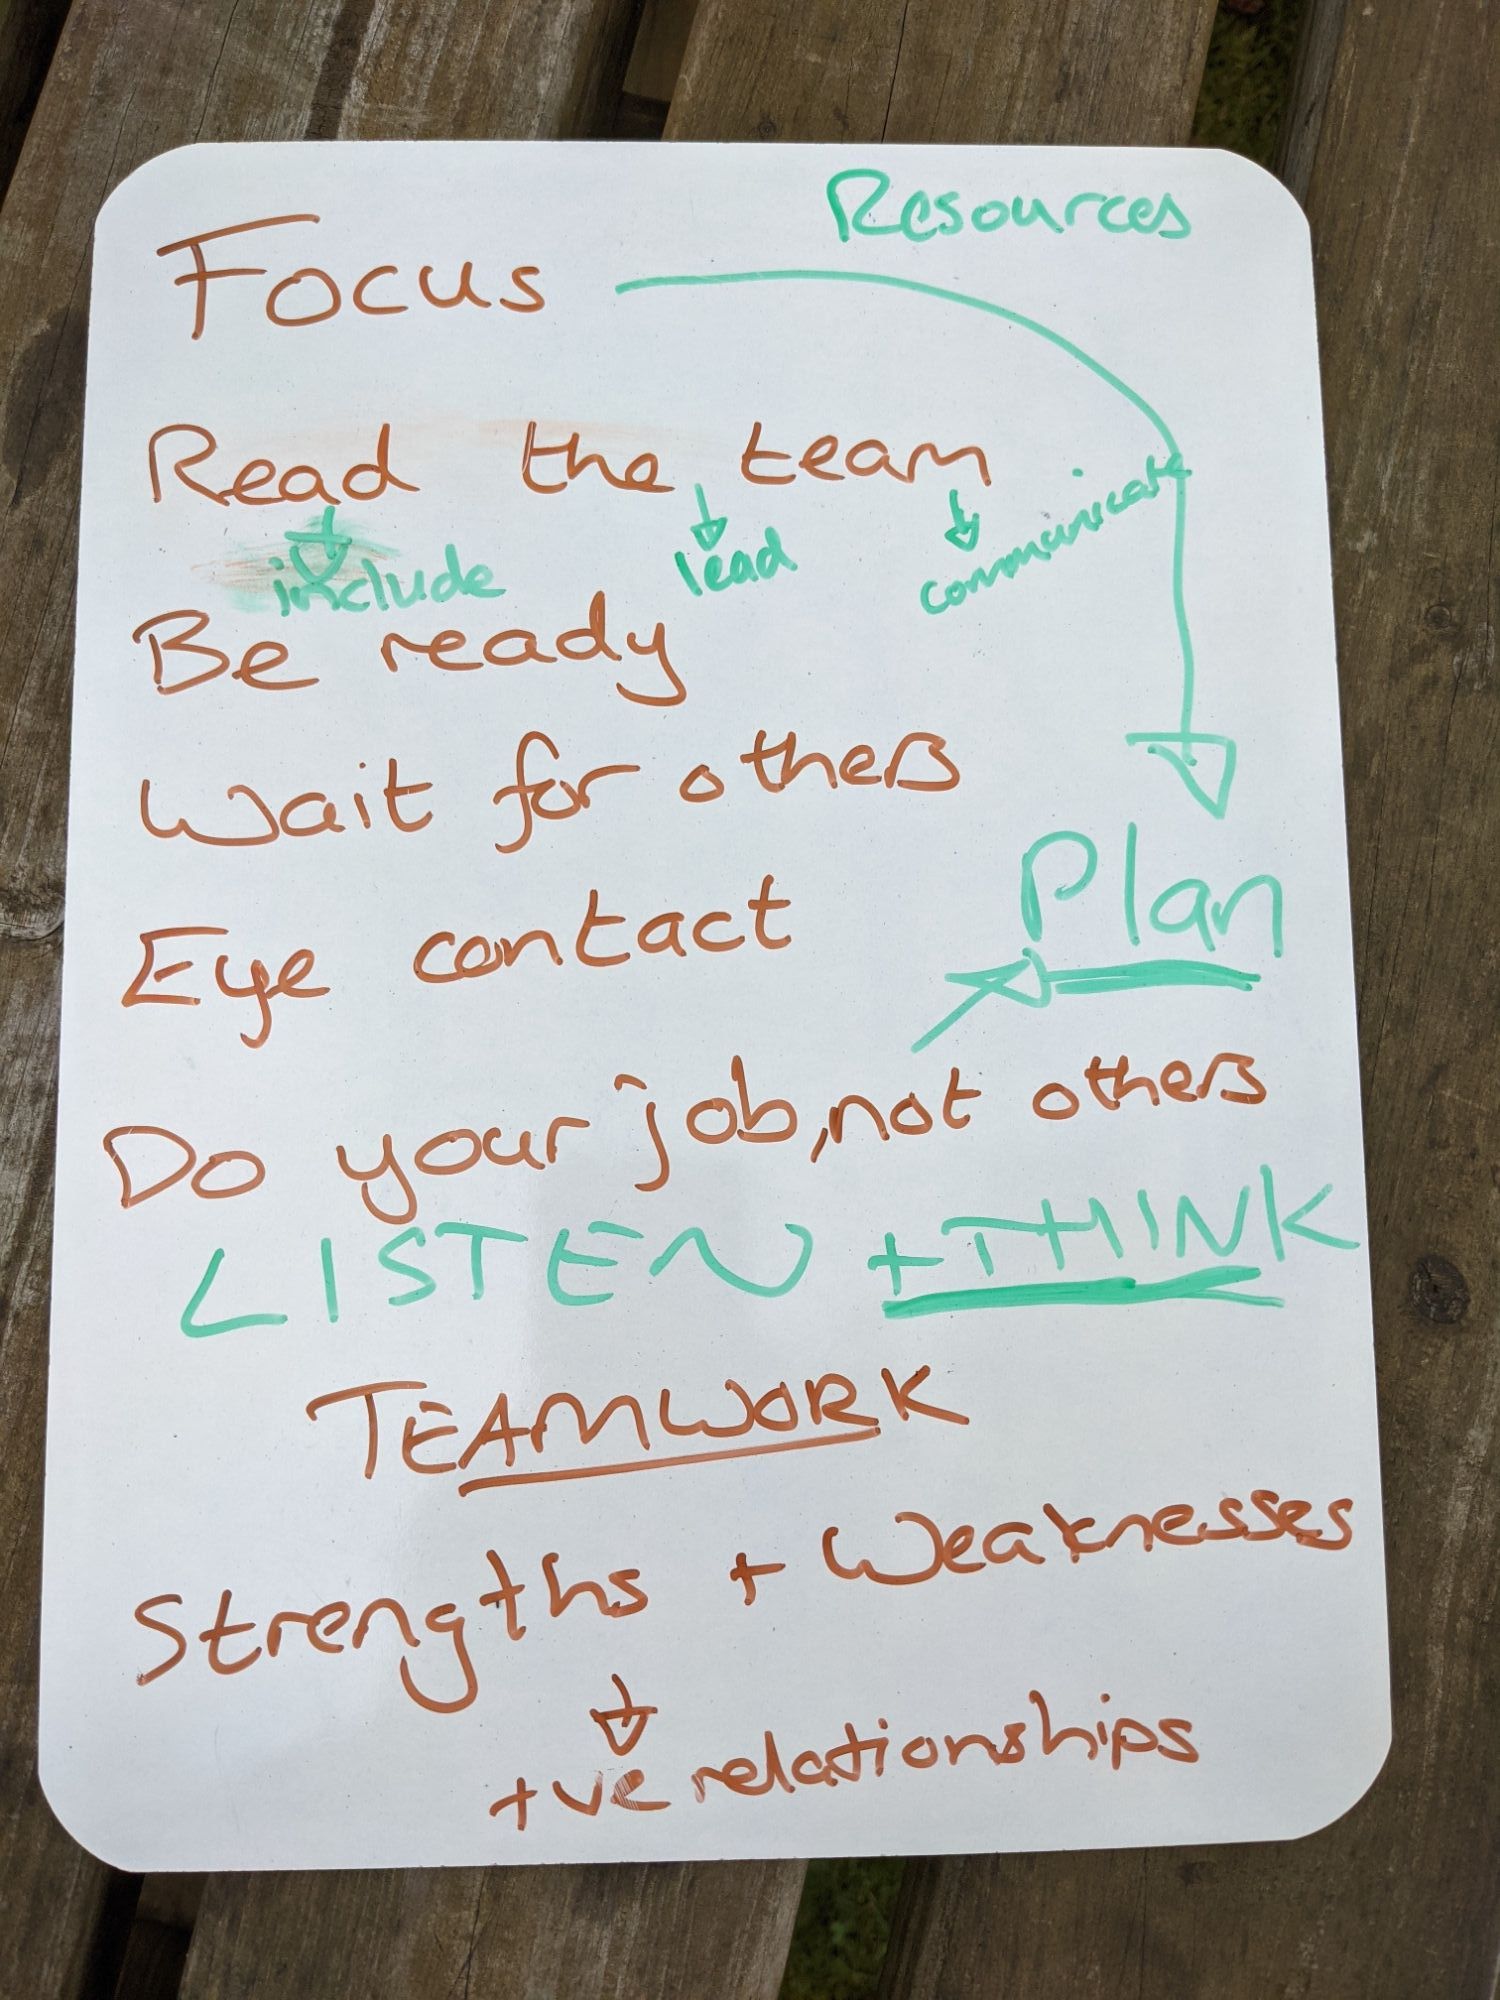 Resources
Focus
Read the team
include lead communicate
Be ready
Wait for others
Plan
Eye contact
Do your job, not others
LISTEN + THINK
TEAMWORK
Strengths + Weaknesses
+ve relationships